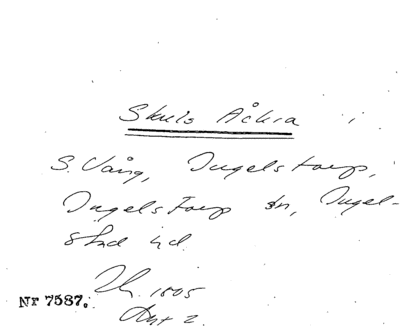 Skuls Åkra i
S. Vång, Ingelstorp,
Ingelstorp sn, Ingel-
stad hd.
1805
Nr 7587.
Akt 2.